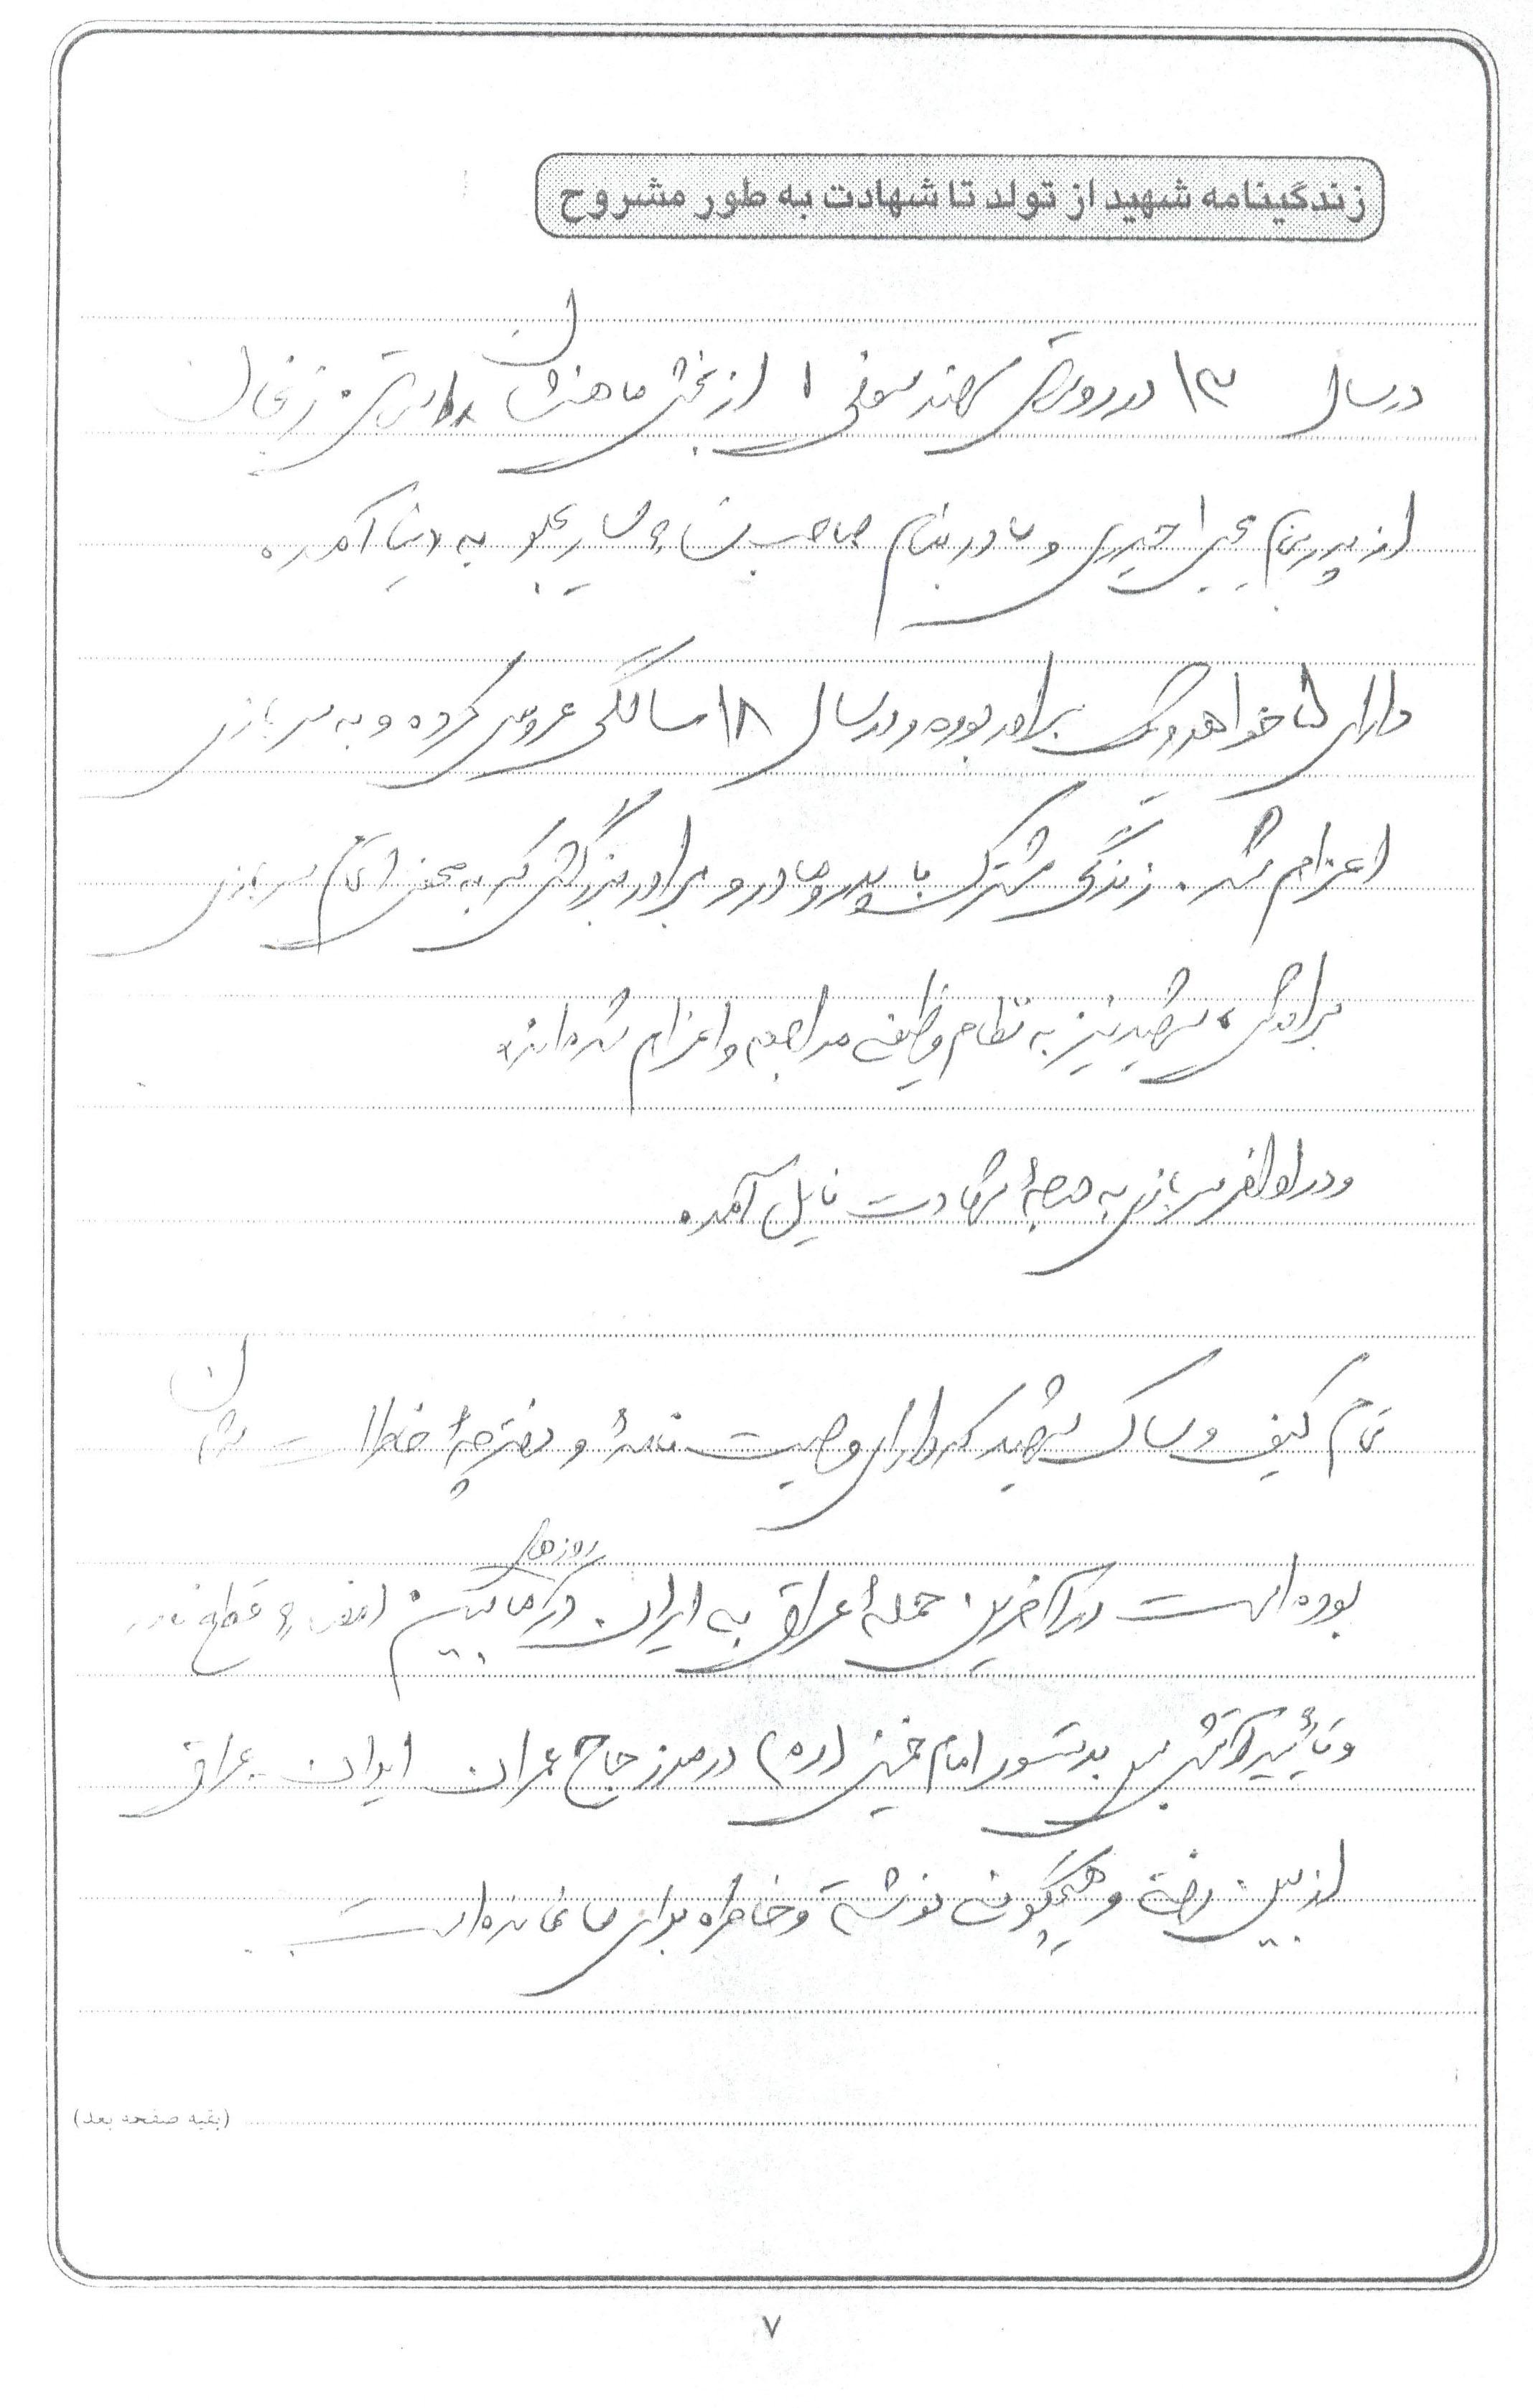 زندگینامه شهید از تولد تا شهادت به طور مشروح
در سال ۱۳ در روستای سهند سفلی ۱ از بخش ماهنشان استان زنجان
از پدر بنام یحیی حیدری و مادر بنام صاحب نساء به دنیا آمده
دارای ۵ خواهر و یک برادر بوده و در سال ۱۸ سالگی عروسی کرده و به سربازی
اعزام شد. زندگی مشترک با پدر و مادر و برادر بزرگش که به محض اتمام سربازی
برادرش، شهید نیز به نظام وظیفه مراجعه و اعزام شده‌اند.
و در اواخر سربازی به درجهٔ شهادت نایل آمده.
تمام کیف و ساک شهید که دارای وصیت نامهٔ و دفترچهٔ خاطرات شان
بوده است در آخرین حملهٔ عراق به ایران در روزهای مابین امضاء قطع نامه
و تأثیر آتش بس بدستور امام خمینی (ره) در مرز حاج عمران ایران - عراق
از بین رفته و هیچگونه نوشته و خاطره برای ما نمانده است
(بقیه صفحه بعد)
۷